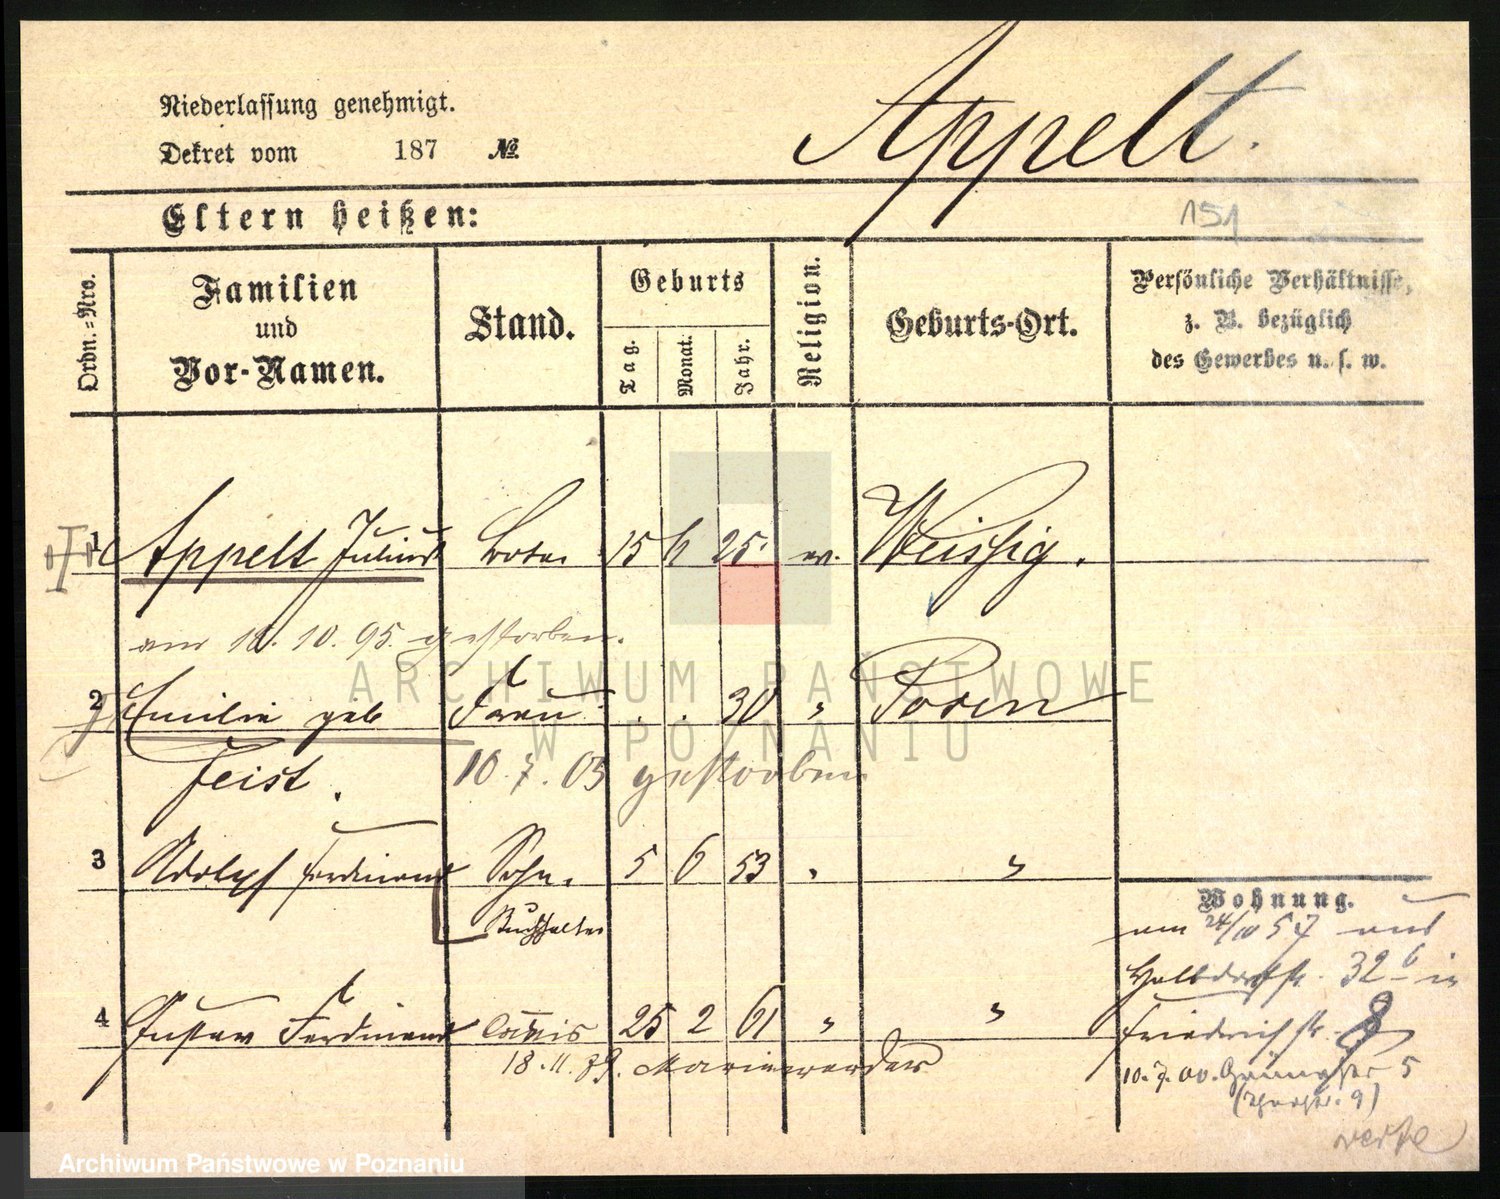 Niederlassung genehmigt.
Dekret vom 187 No.
Appelt.
Eltern heißen:
151
Ordn.=Nro.
Familien
und
Vor-Namen.
Stand.
Geburts
Tag.
Monat.
Jahr.
Religion.
Geburts-Ort.
Persönliche Verhältnisse,
z. B. bezüglich
des Gewerbes u. s. w.
1 Appelt Julius Bote 15 6 25 ev. Weissig.
am 10. 95. gestorben.
2 Emilie geb Frau . . 30 " Posen
Feist. 10. 7. 05 gestorben
3 Adolph Ferdinand Sohn. 5 6 53 " "
Buchhalter
Wohnung.
am 24/10 57 aus
Halbdorfstr. 32 b in
4 Gustav Ferdinand Commis 25 2 61 " "
Friedrichstr. 8
18. 11. 89. Marienwerder
10. 7. 00. 5
9)
ARCHIWUM PAŃSTWOWE
W POZNANIU
Archiwum Państwowe w Poznaniu